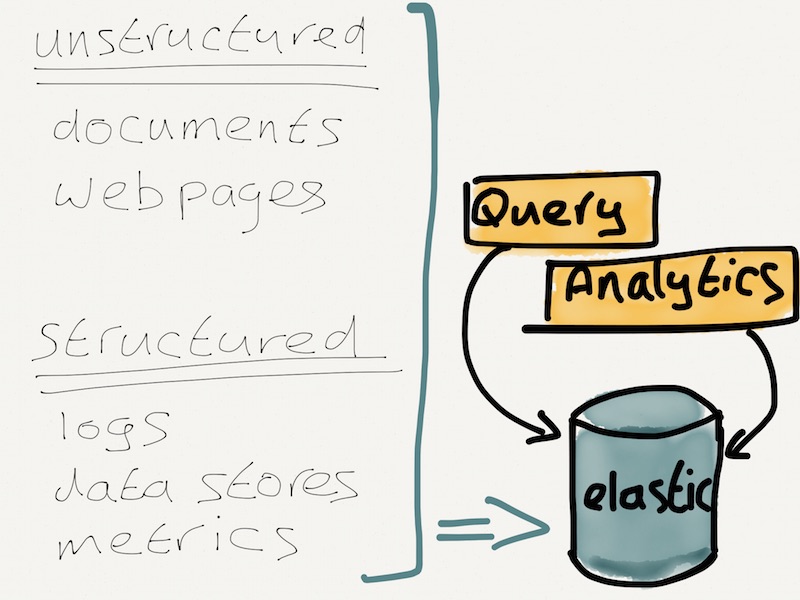 unstructured
documents
web pages
structured
logs
data stores
metrics
Query
Analytics
elastic